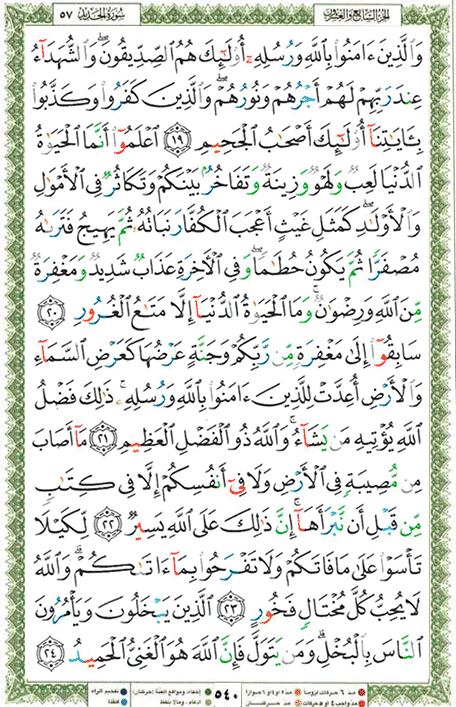 الجزء السابع والعشرون
سورة الحديد ٥٧
وَالَّذِينَ ءَامَنُوا۟ بِاللَّهِ وَرُسُلِهِۦٓ أُو۟لَٰٓئِكَ هُمُ الصِّدِّيقُونَ ۖ وَالشُّهَدَآءُ
عِندَ رَبِّهِمْ لَهُمْ أَجْرُهُمْ وَنُورُهُمْ ۖ وَالَّذِينَ كَفَرُوا۟ وَكَذَّبُوا۟
بِـَٔايَٰتِنَآ أُو۟لَٰٓئِكَ أَصْحَٰبُ الْجَحِيمِ ١٩ اعْلَمُوٓا۟ أَنَّمَا الْحَيَوٰةُ
الدُّنْيَا لَعِبٌ وَلَهْوٌ وَزِينَةٌ وَتَفَاخُرٌۢ بَيْنَكُمْ وَتَكَاثُرٌ فِى الْأَمْوَٰلِ
وَالْأَوْلَٰدِ ۖ كَمَثَلِ غَيْثٍ أَعْجَبَ الْكُفَّارَ نَبَاتُهُۥ ثُمَّ يَهِيجُ فَتَرَىٰهُ
مُصْفَرًّا ثُمَّ يَكُونُ حُطَٰمًا ۖ وَفِى الْءَاخِرَةِ عَذَابٌ شَدِيدٌ وَمَغْفِرَةٌ
مِّنَ اللَّهِ وَرِضْوَٰنٌ ۚ وَمَا الْحَيَوٰةُ الدُّنْيَآ إِلَّا مَتَٰعُ الْغُرُورِ ٢٠
سَابِقُوٓا۟ إِلَىٰ مَغْفِرَةٍ مِّن رَّبِّكُمْ وَجَنَّةٍ عَرْضُهَا كَعَرْضِ السَّمَآءِ
وَالْأَرْضِ أُعِدَّتْ لِلَّذِينَ ءَامَنُوا۟ بِاللَّهِ وَرُسُلِهِۦ ۚ ذَٰلِكَ فَضْلُ
اللَّهِ يُؤْتِيهِ مَن يَشَآءُ ۚ وَاللَّهُ ذُو الْفَضْلِ الْعَظِيمِ ٢١ مَآ أَصَابَ
مِن مُّصِيبَةٍ فِى الْأَرْضِ وَلَا فِىٓ أَنفُسِكُمْ إِلَّا فِى كِتَٰبٍ
مِّن قَبْلِ أَن نَّبْرَأَهَآ ۚ إِنَّ ذَٰلِكَ عَلَى اللَّهِ يَسِيرٌ ٢٢ لِّكَيْلَا
تَأْسَوْا۟ عَلَىٰ مَا فَاتَكُمْ وَلَا تَفْرَحُوا۟ بِمَآ ءَاتَىٰكُمْ ۗ وَاللَّهُ
لَا يُحِبُّ كُلَّ مُخْتَالٍ فَخُورٍ ٢٣ الَّذِينَ يَبْخَلُونَ وَيَأْمُرُونَ
النَّاسَ بِالْبُخْلِ ۗ وَمَن يَتَوَلَّ فَإِنَّ اللَّهَ هُوَ الْغَنِىُّ الْحَمِيدُ ٢٤
مد ٦ حركات لزوماً مد ٢ او ٤ او ٦ جوازاً
مد واجب ٤ او ٥ حركات مد حركتان
٥٤٠
إخفاء، ومواقع الغنة (حركتان)
ادغام، وما لا يلفظ
تفخيم الراء
قلقلة